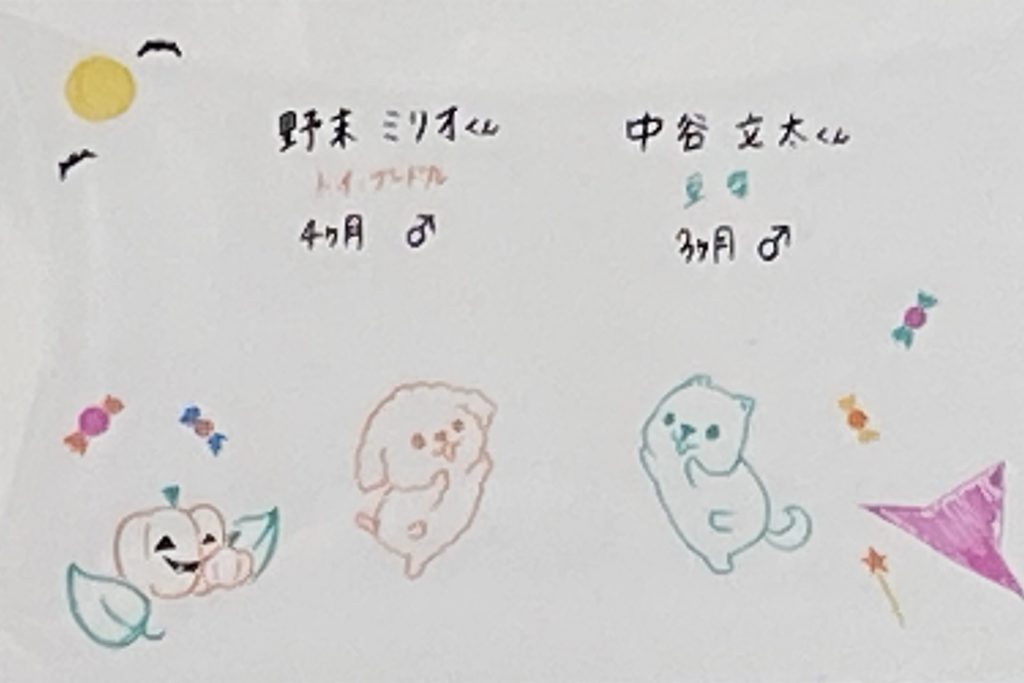 野末 ミリオくん
トイ・プードル
4ヶ月 ♂
中谷 文太くん
豆柴
3ヶ月 ♂